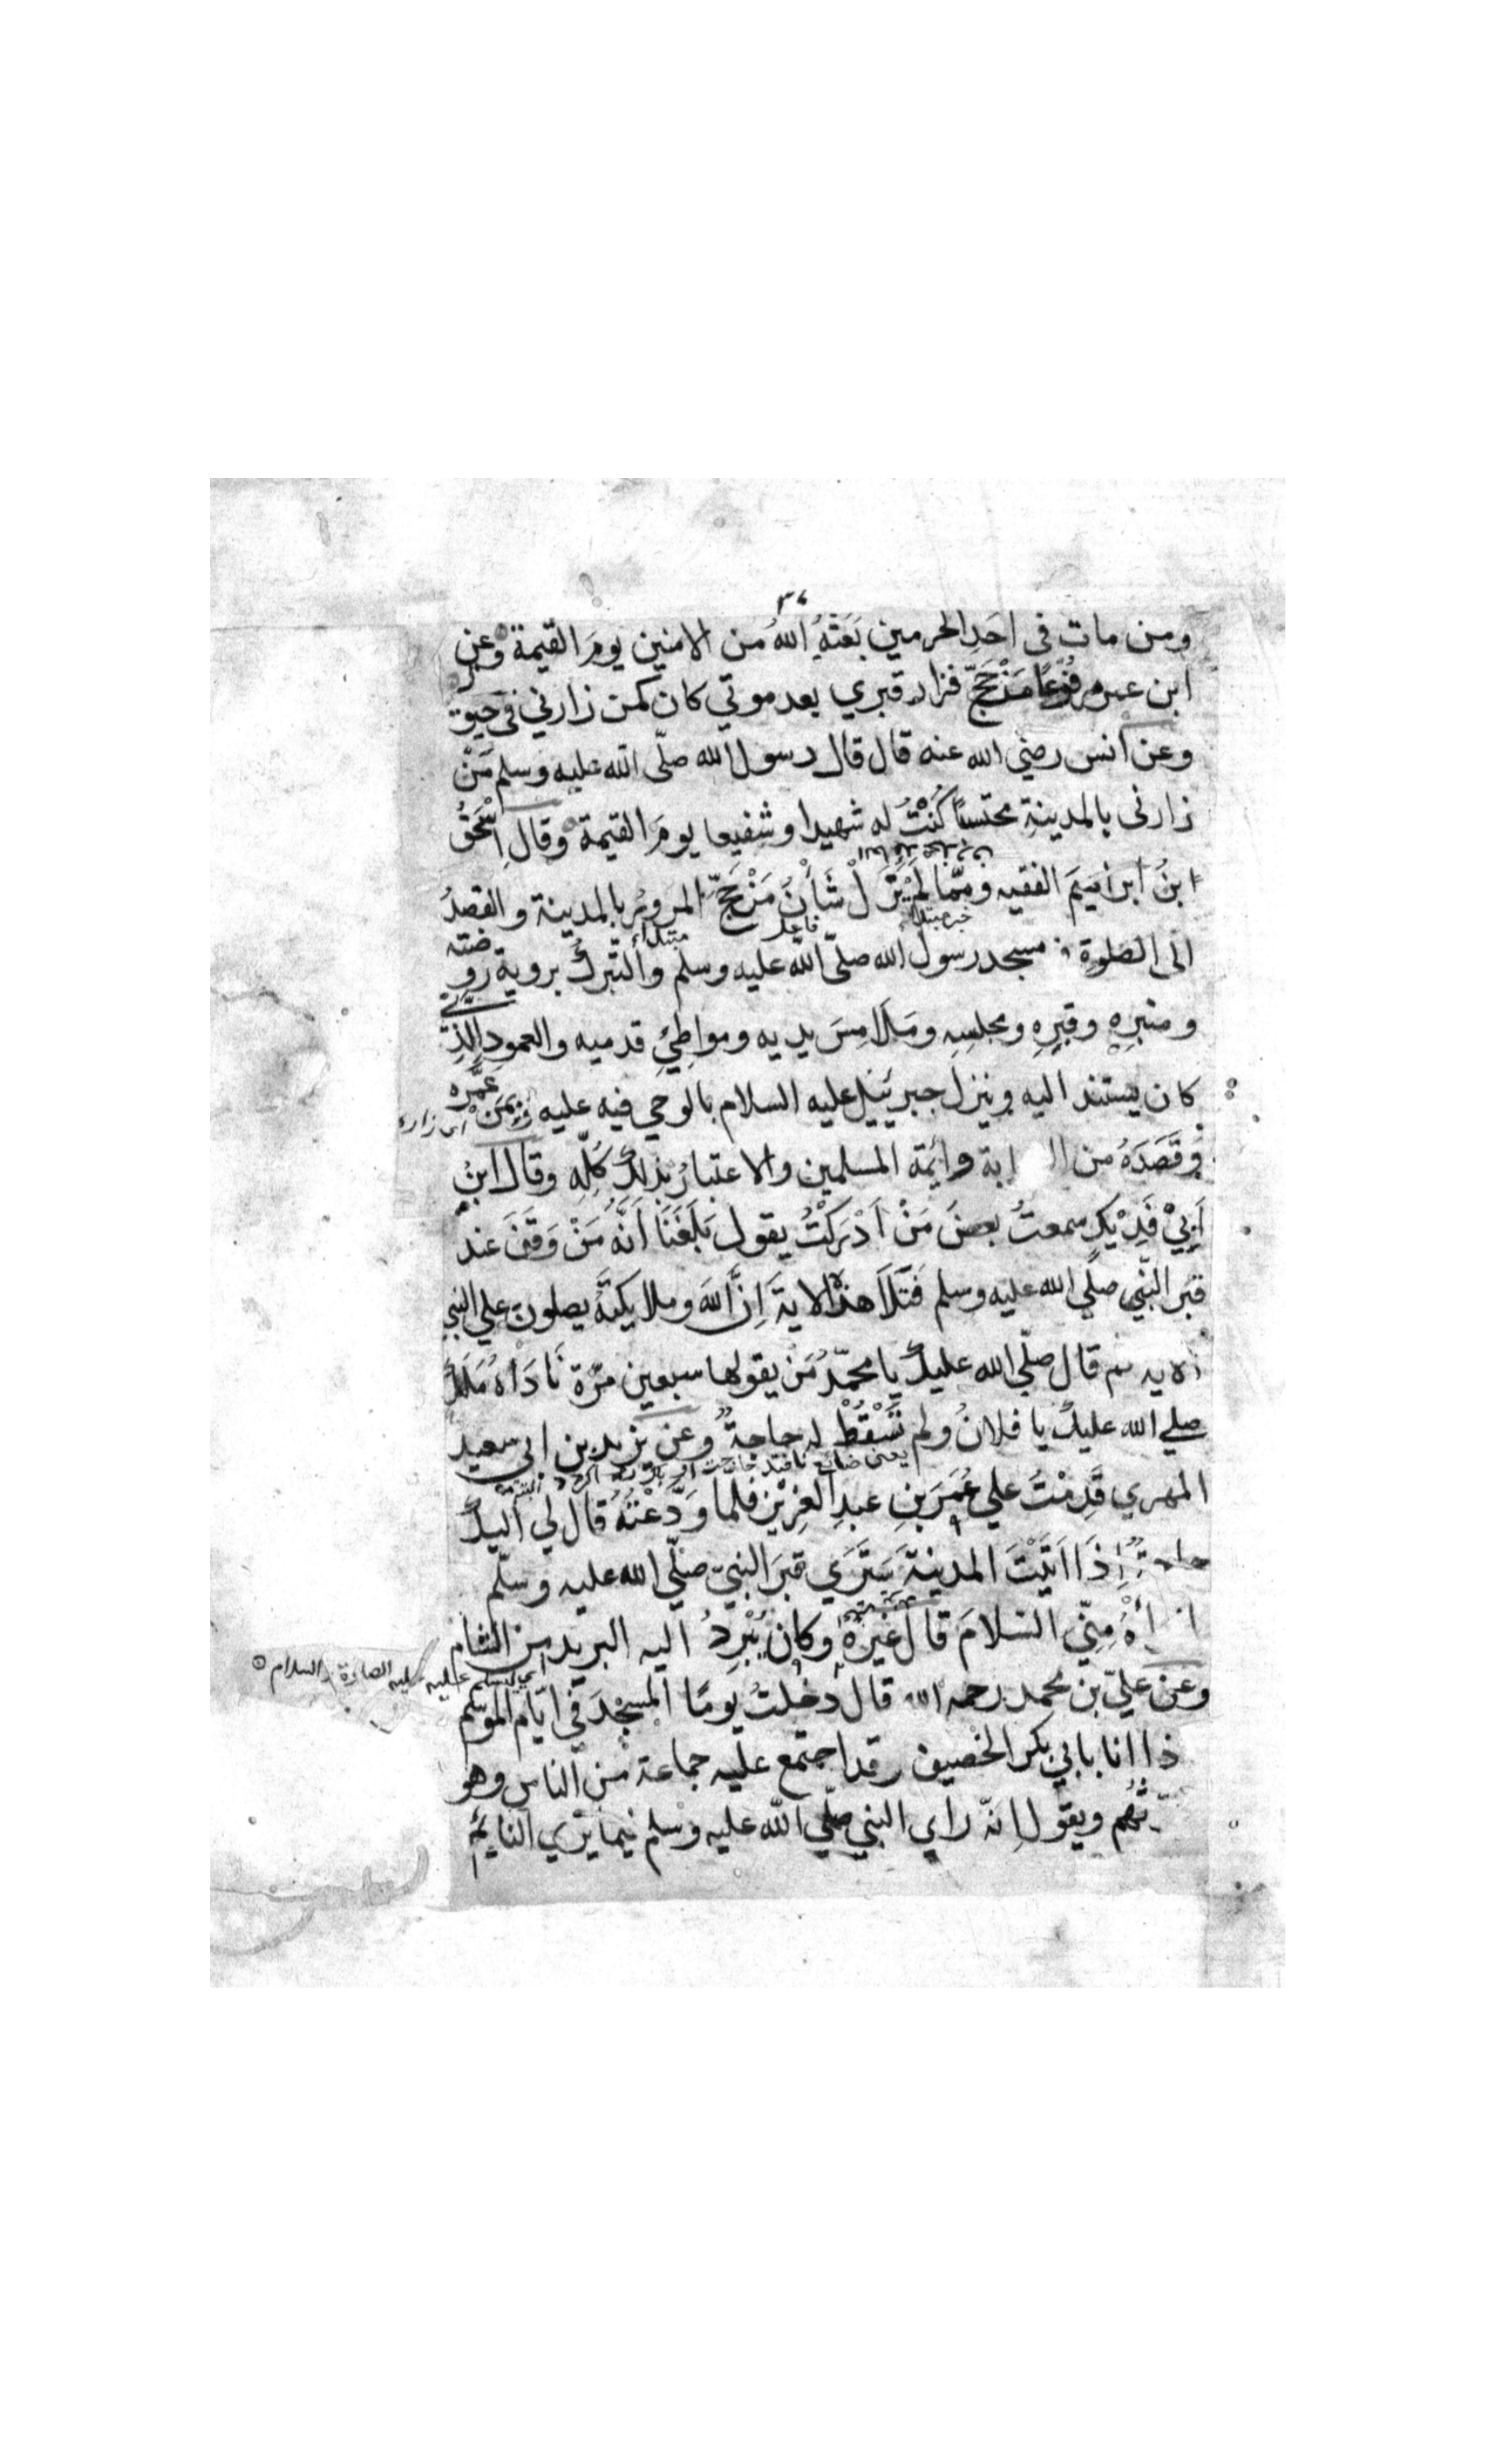 ٣٧
ومن مات فى احَدِ الحرمين بَعَثَهُ اللهُ من الامنين يومَ القيمة وعن
ابن عمر مرفُوعًا مَنْ حَجّ فزار قبري بعد موتي كان كمن زارني في حيوتي
وعن انس رضي الله عنه قال قال رسول الله صلّى الله عليه وسلم مَنْ
زارنى بالمدينةِ محتسبًا كُنْتُ له شهيدا وشفيعا يومَ القيمة وقال اِسْحٰقُ
ابنُ ابراهيمَ الفقيه وممّا لمْ يَزَلْ شَأْنُ مَنْ حَجَّ المرورُ بالمدينة والقصدُ
خبر مبتدأ فاعل مبتداء
الى الصلوة فى مسجد رسول الله صلّى الله عليه وسلم والتّبركُ بروية روضته
ومنبرِهِ وقبرِهِ ومجلسِهِ ومَلَامِسَ يديه ومواطِئِ قدميه والعمودِ الّذِي
كان يستند اليه وينزل جبرئيل عليه السلام بالوحي فيه عليه وَبِمَنْ عمَّره
اى زاره
وَقَصَدَهُ من ال ابة وائمّة المسلمين والاعتبارُ بذلك كُلِّهِ وقال ابنُ
اَبِيْ فُدَيْكٍ سمعتُ بعضَ مَنْ اَدْرَكْتُ يقول بَلَغَنَا اَنَّهُ مَنْ وَقَفَ عند
قبر النّبي صلّي الله عليه وسلم فَتَلَا هذه الاية اِنَّ اللهَ وملايكتَهُ يصلون علي النبي
الاية ثم قال صلّي الله عليك يا محمّدُ مَنْ يقولها سبعين مرّة نَادَاهُ مَلَكٌ
صلي الله عليك يا فلانُ ولم تَسْقُطْ له حاجةٌ وعن يزيد بن ابي سعيد
المهري قَدِمْتُ علي عُمَرَ بنِ عبدِ العزِيْزِ فلما وَدَّعْتُهُ قال لي اليك
حاجةٌ اِذَا اتَيْتَ المدينةَ سَتَرَي قبرَ النبيّ صلّي الله عليه وسلّم
مِنّي السّلامَ قال غَيْرُهُ وكان يُبْرِدُ اليه البريد من الشام
اي ليسلم عليه عليه الصلوة والسلام
وعن عليّ بن محمد رحمه الله قال دخلتُ يومًا المسجدَ في ايّام الموسم
ذا انا بابي بكر الخصيف وقد اجتمع عليه جماعة من الناس وهو
ويقول انّه راي النبي صلّي الله عليه وسلم فيما يَرَي النايم